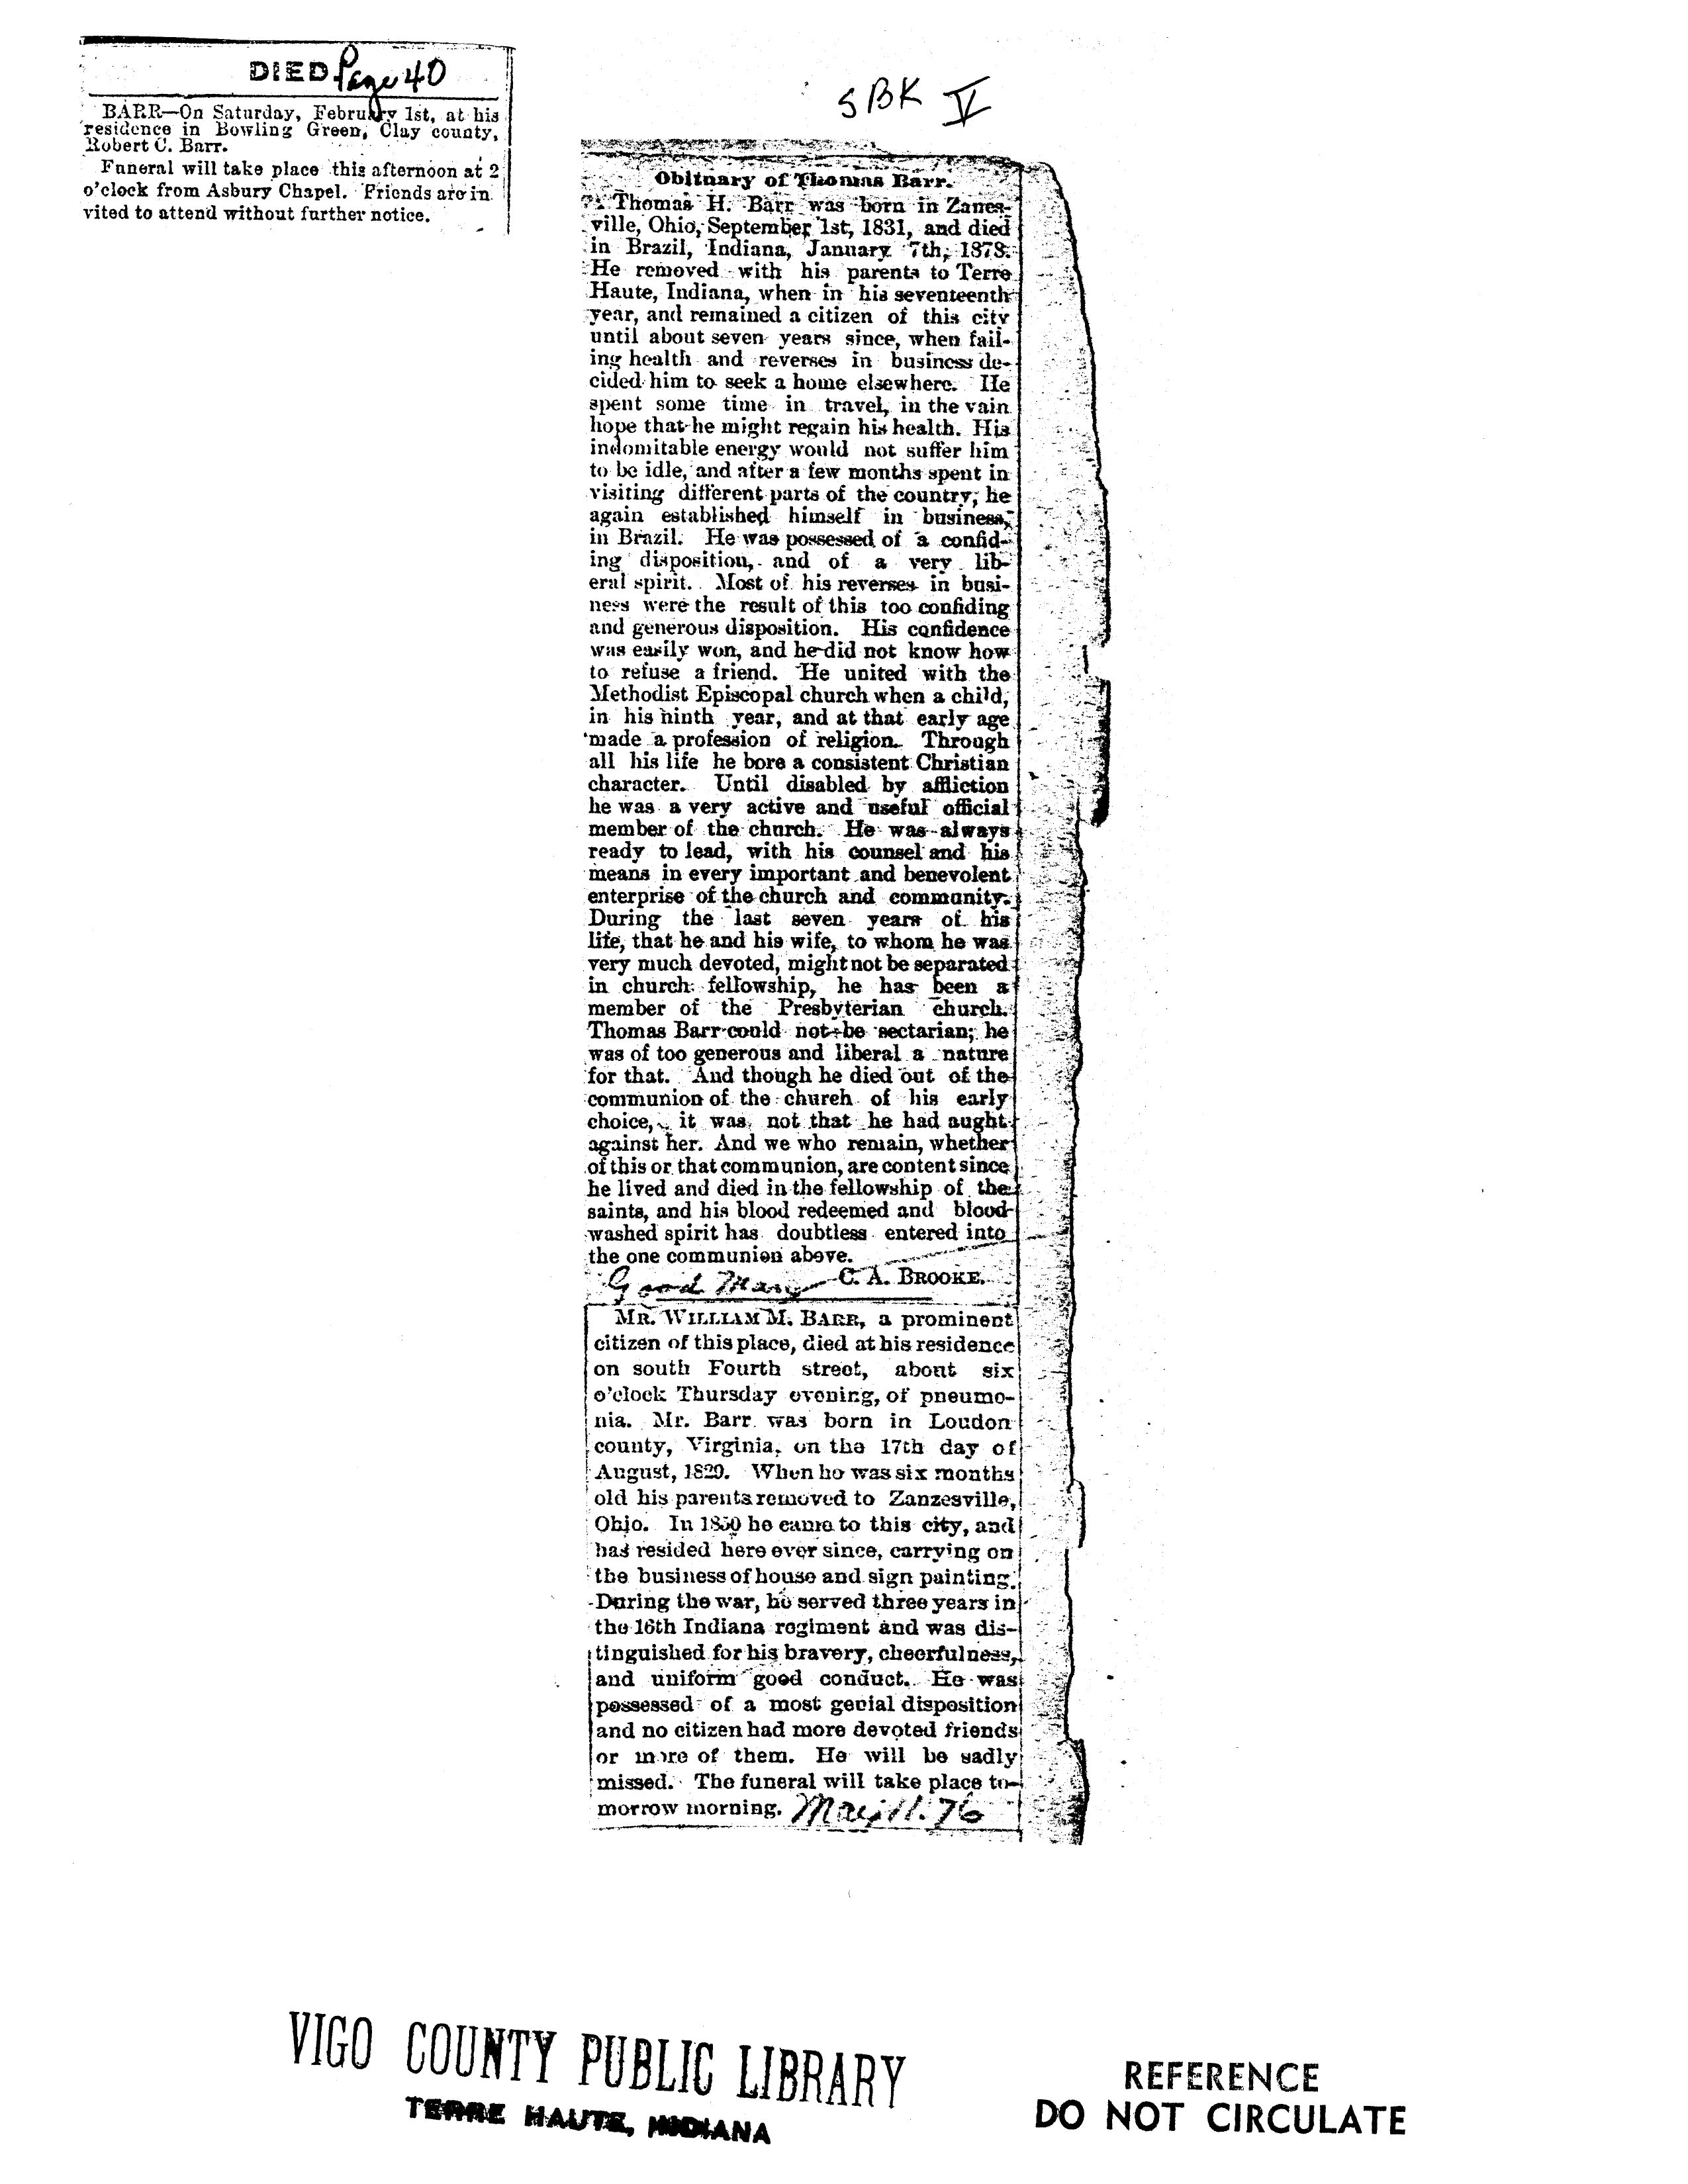 DIED Page 40
BARR—On Saturday, February 1st, at his
residence in Bowling Green, Clay county,
Robert C. Barr.
Funeral will take place this afternoon at 2
o'clock from Asbury Chapel. Friends are in
vited to attend without further notice.
SBK V
Obituary of Thomas Barr.
Thomas H. Barr was born in Zanes-
ville, Ohio, September 1st, 1831, and died
in Brazil, Indiana, January 7th, 1878.
He removed with his parents to Terre
Haute, Indiana, when in his seventeenth
year, and remained a citizen of this city
until about seven years since, when fail-
ing health and reverses in business de-
cided him to seek a home elsewhere. He
spent some time in travel, in the vain
hope that he might regain his health. His
indomitable energy would not suffer him
to be idle, and after a few months spent in
visiting different parts of the country, he
again established himself in business,
in Brazil. He was possessed of a confid-
ing disposition, and of a very lib-
eral spirit. Most of his reverses in busi-
ness were the result of this too confiding
and generous disposition. His confidence
was easily won, and he did not know how
to refuse a friend. He united with the
Methodist Episcopal church when a child,
in his ninth year, and at that early age
made a profession of religion. Through
all his life he bore a consistent Christian
character. Until disabled by affliction
he was a very active and useful official
member of the church. He was always
ready to lead, with his counsel and his
means in every important and benevolent
enterprise of the church and community.
During the last seven years of his
life, that he and his wife, to whom he was
very much devoted, might not be separated
in church fellowship, he has been a
member of the Presbyterian church.
Thomas Barr could not be sectarian; he
was of too generous and liberal a nature
for that. And though he died out of the
communion of the church of his early
choice, it was not that he had aught
against her. And we who remain, whether
of this or that communion, are content since
he lived and died in the fellowship of the
saints, and his blood redeemed and blood-
washed spirit has doubtless entered into
the one communion above.
Good Man C. A. BROOKE.
MR. WILLIAM M. BARR, a prominent
citizen of this place, died at his residence
on south Fourth street, about six
o'clock Thursday evening, of pneumo-
nia. Mr. Barr was born in Loudon
county, Virginia, on the 17th day of
August, 1829. When he was six months
old his parents removed to Zanzesville,
Ohio. In 1850 he came to this city, and
has resided here ever since, carrying on
the business of house and sign painting.
During the war, he served three years in
the 16th Indiana regiment and was dis-
tinguished for his bravery, cheerfulness,
and uniform good conduct. He was
possessed of a most genial disposition
and no citizen had more devoted friends
or more of them. He will be sadly
missed. The funeral will take place to-
morrow morning. 11. 76
VIGO COUNTY PUBLIC LIBRARY
TERRE HAUTE, INDIANA
REFERENCE
DO NOT CIRCULATE